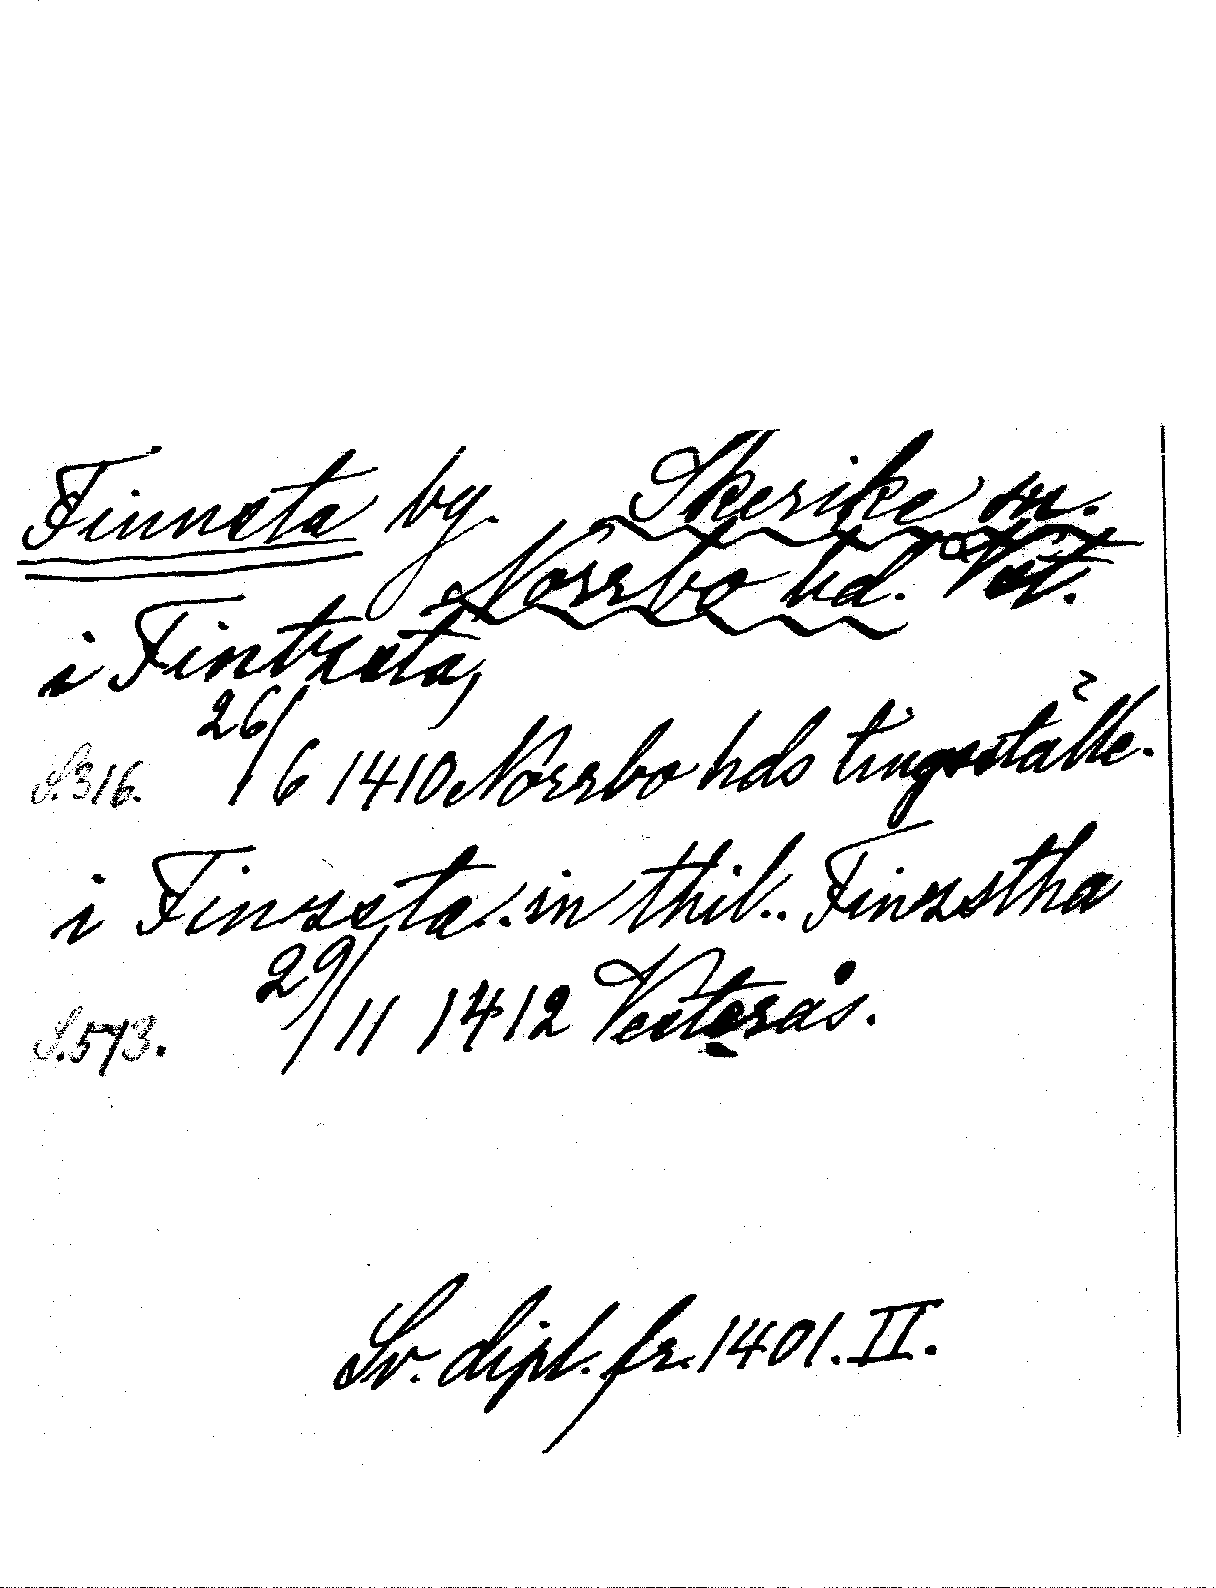 Finnsta by. Skerike sn.
Norrbo hd. Vstm.
i Fintzsta,
S.316. 26/6 1410 Norrbo hds tingsställe.
i Finzsta. in thil.. Finzstha
S.573. 29/11 1412 Vesterås.
Sv. dipl. fr. 1401. II.